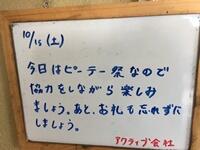 10/15(土)
今日はピーテー祭なので
協力をしながら楽しみ
ましょう。あと、お礼も忘れずに
しましょう。
アクティブ会社